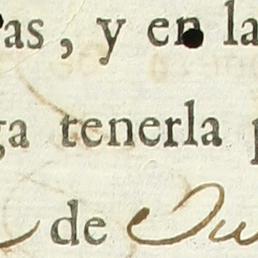 as, y en la
ga tenerla
de